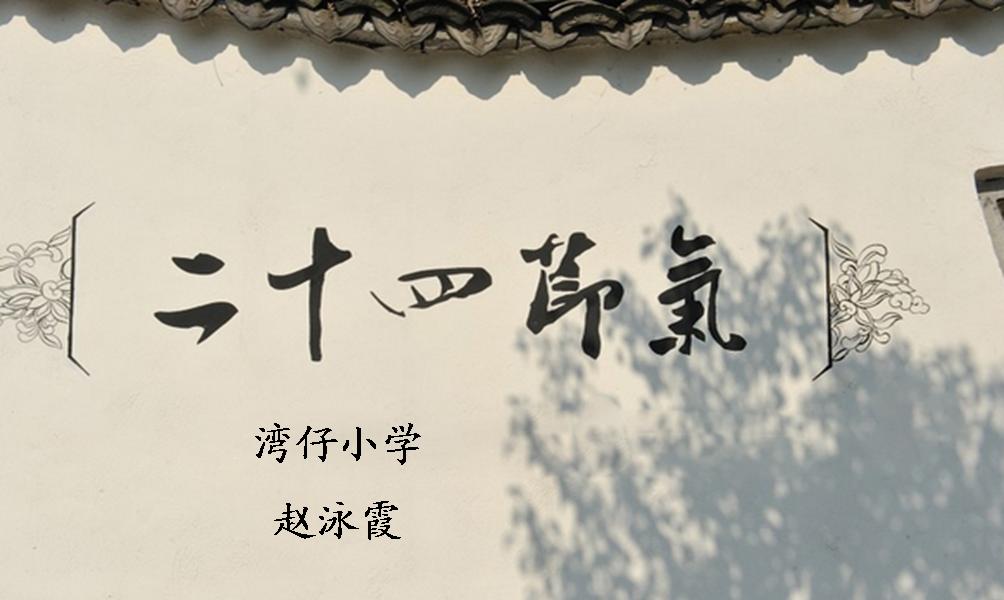 二十四節氣
湾仔小学
赵泳霞